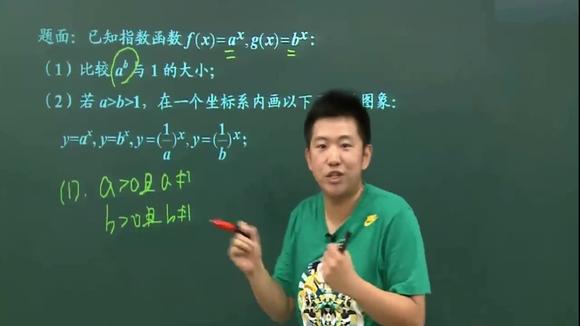 题面：已知指数函数f(x)=aˣ,g(x)=bˣ:
（1）比较aᵇ与1的大小；
（2）若a>b>1，在一个坐标系内画以下 图象：
y=aˣ, y=bˣ, y=(1/a)ˣ, y=(1/b)ˣ;
(1). a>0且a≠1
b>0且b≠1